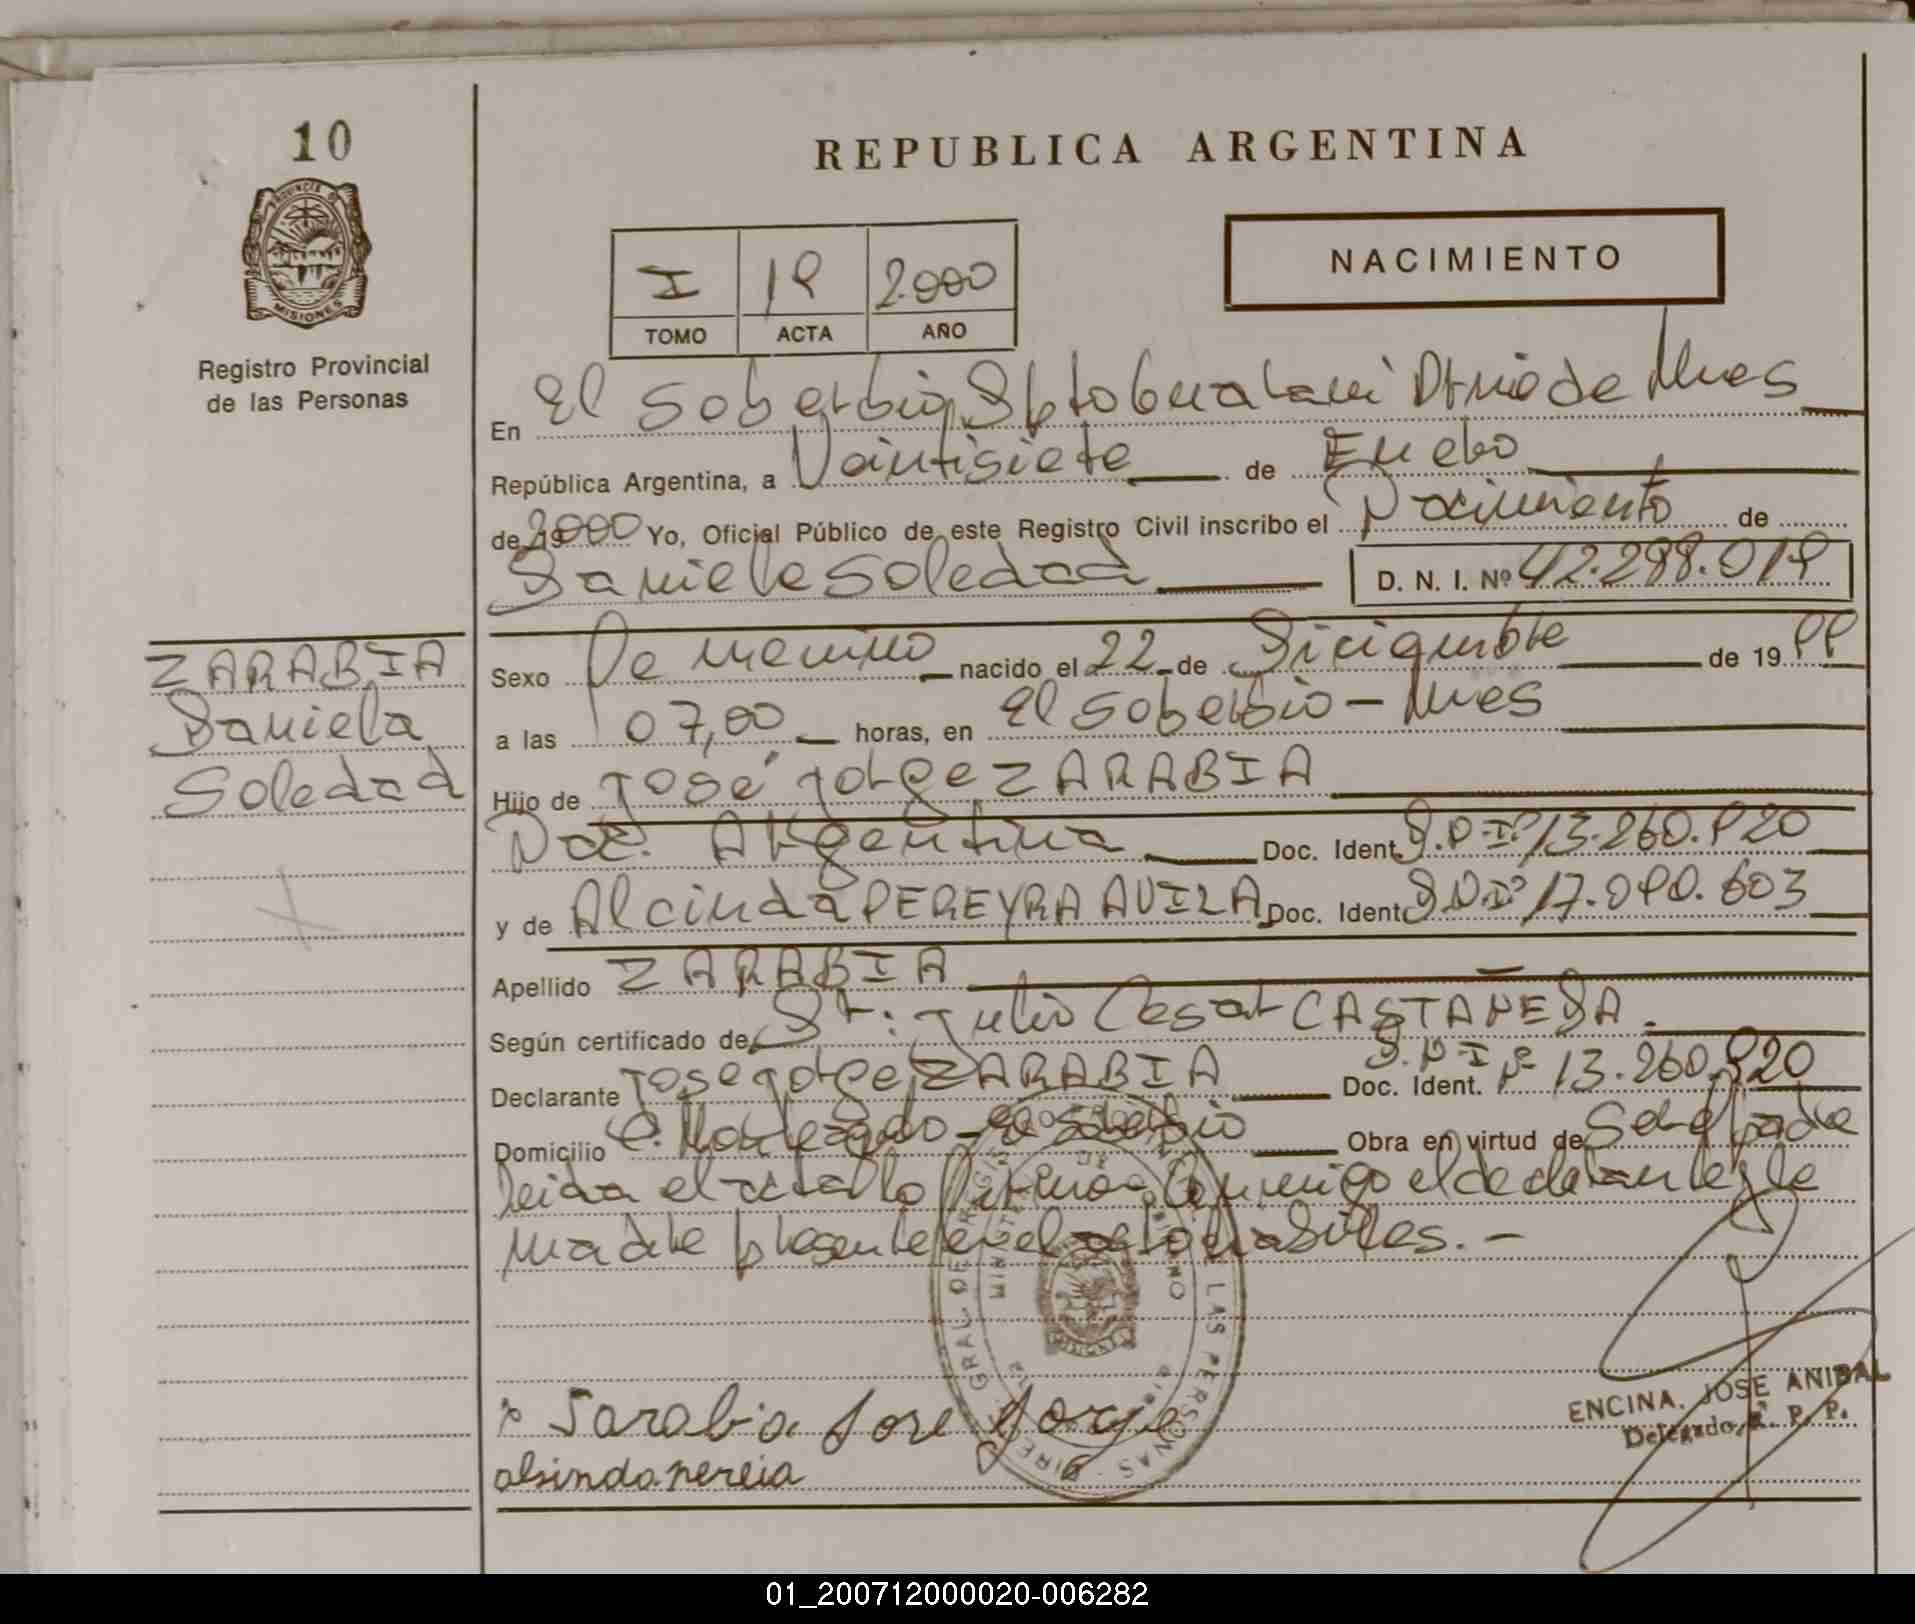 10
REPUBLICA ARGENTINA
PROVINCIA DE
MISIONES
Registro Provincial
de las Personas
NACIMIENTO
I 19 2.000
TOMO ACTA AÑO
En El Soberbio, Dpto Guaraní Mnes
República Argentina, a Veintisiete de Enero
de 2000 Yo, Oficial Público de este Registro Civil inscribo el Nacimiento de
Daniela Soledad D. N. I. Nº 42.298.019
ZARABIA
Daniela
Soledad
Sexo Femenino nacido el 22 de Diciembre de 1999
a las 07,00 horas, en El Soberbio - Mnes
Hijo de José Jorge ZARABIA
Nac. Argentina Doc. Ident. D.N.Iº 13.260.920
y de Alcinda PEREYRA AVILA Doc. Ident. D.N.Iº 17.090.603
Apellido ZARABIA
Según certificado de Dr: Julio Cesar CASTAÑEDA.
Declarante Jose Jorge ZARABIA Doc. Ident. D.N.I Nº 13.260.920
Domicilio C. Mondegado - El Soberbio Obra en virtud de Ser el padre
leida el acta la firman Conmigo el declarante y la
madre presente en el acto
x Sarabia Jose Jorge
alsinda pereia
ENCINA, JOSE ANIBAL
Delegado R. P. P.
01_200712000020-006282